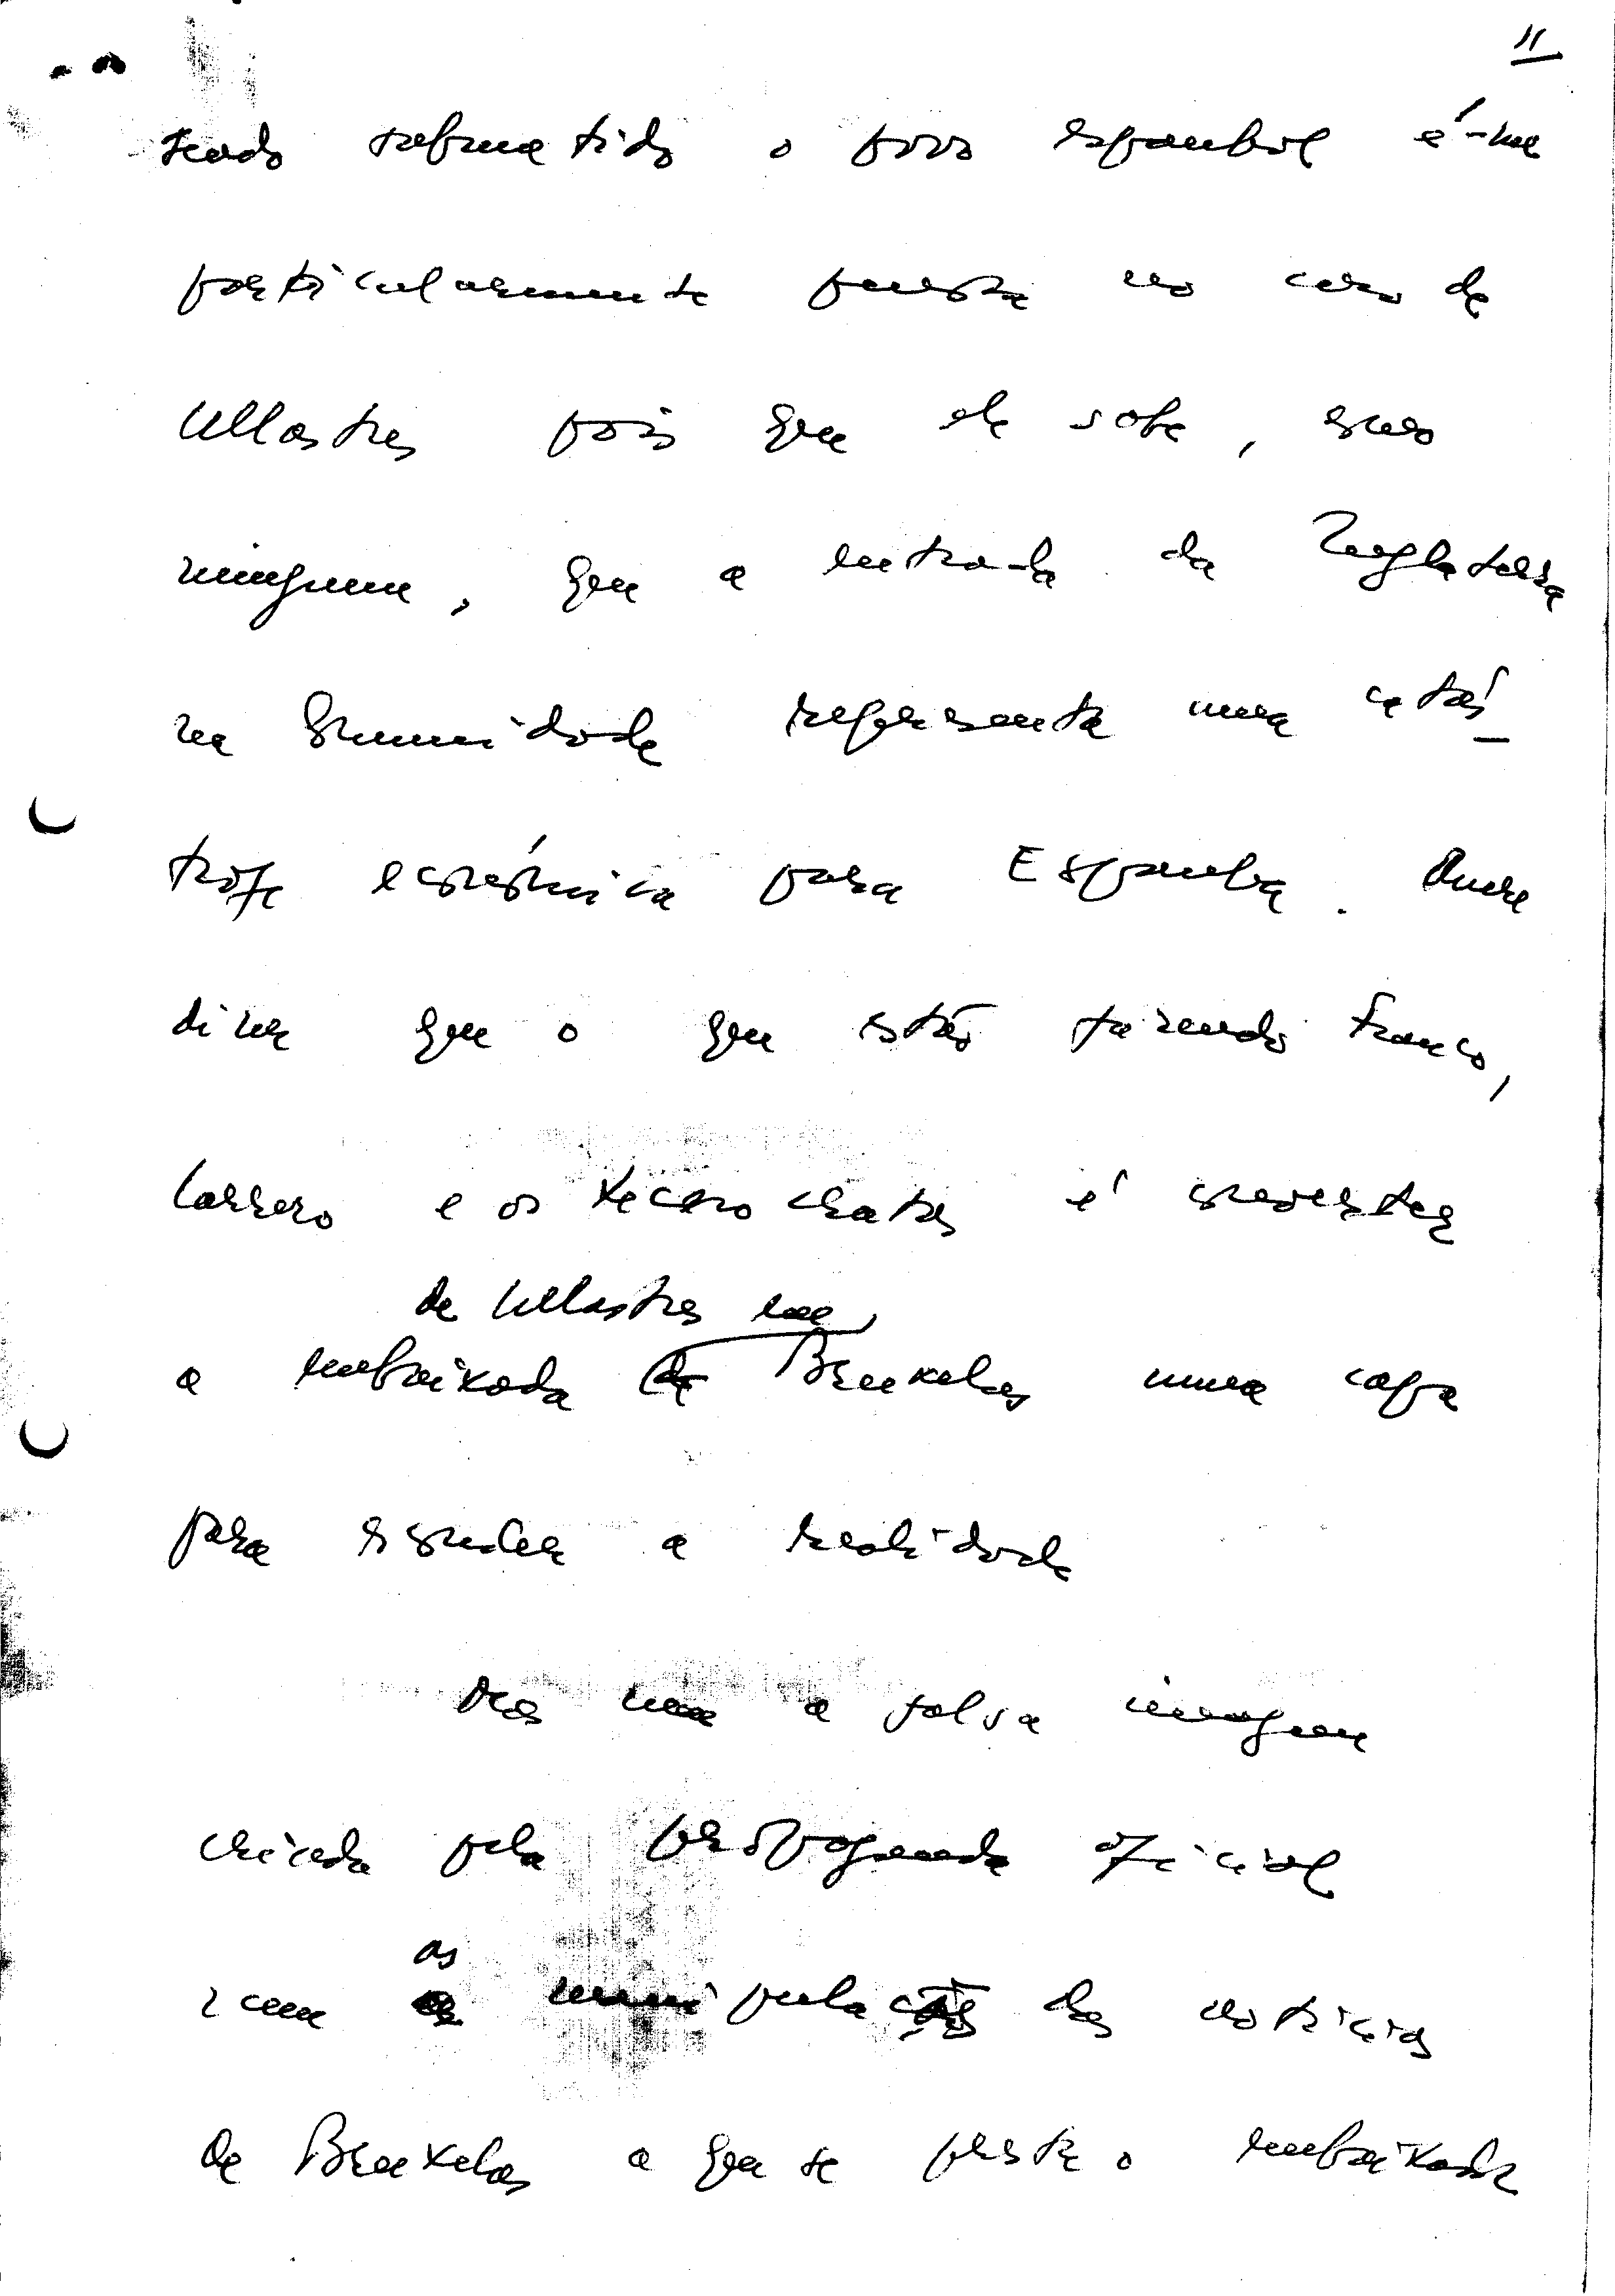 11
tendo submetido o povo espanhol é-me
particularmente funesta no caso de
Ullastres pois que ele sabe, como
ninguem, que a entrada da Inglaterra
na Comunidade representa uma catás-
trofe económica para Espanha. Quere
dizer que o que están fazendo Franco,
Carrero e os tecnocratas é converter
de Ullastres em
a embaixada de Bruxelas numa capa
para esconder a realidade
Mas nem a falsa imagem
criada pela propaganda oficial
as
nem manipulações das noticias
de Bruxelas a que se presta o embaixador